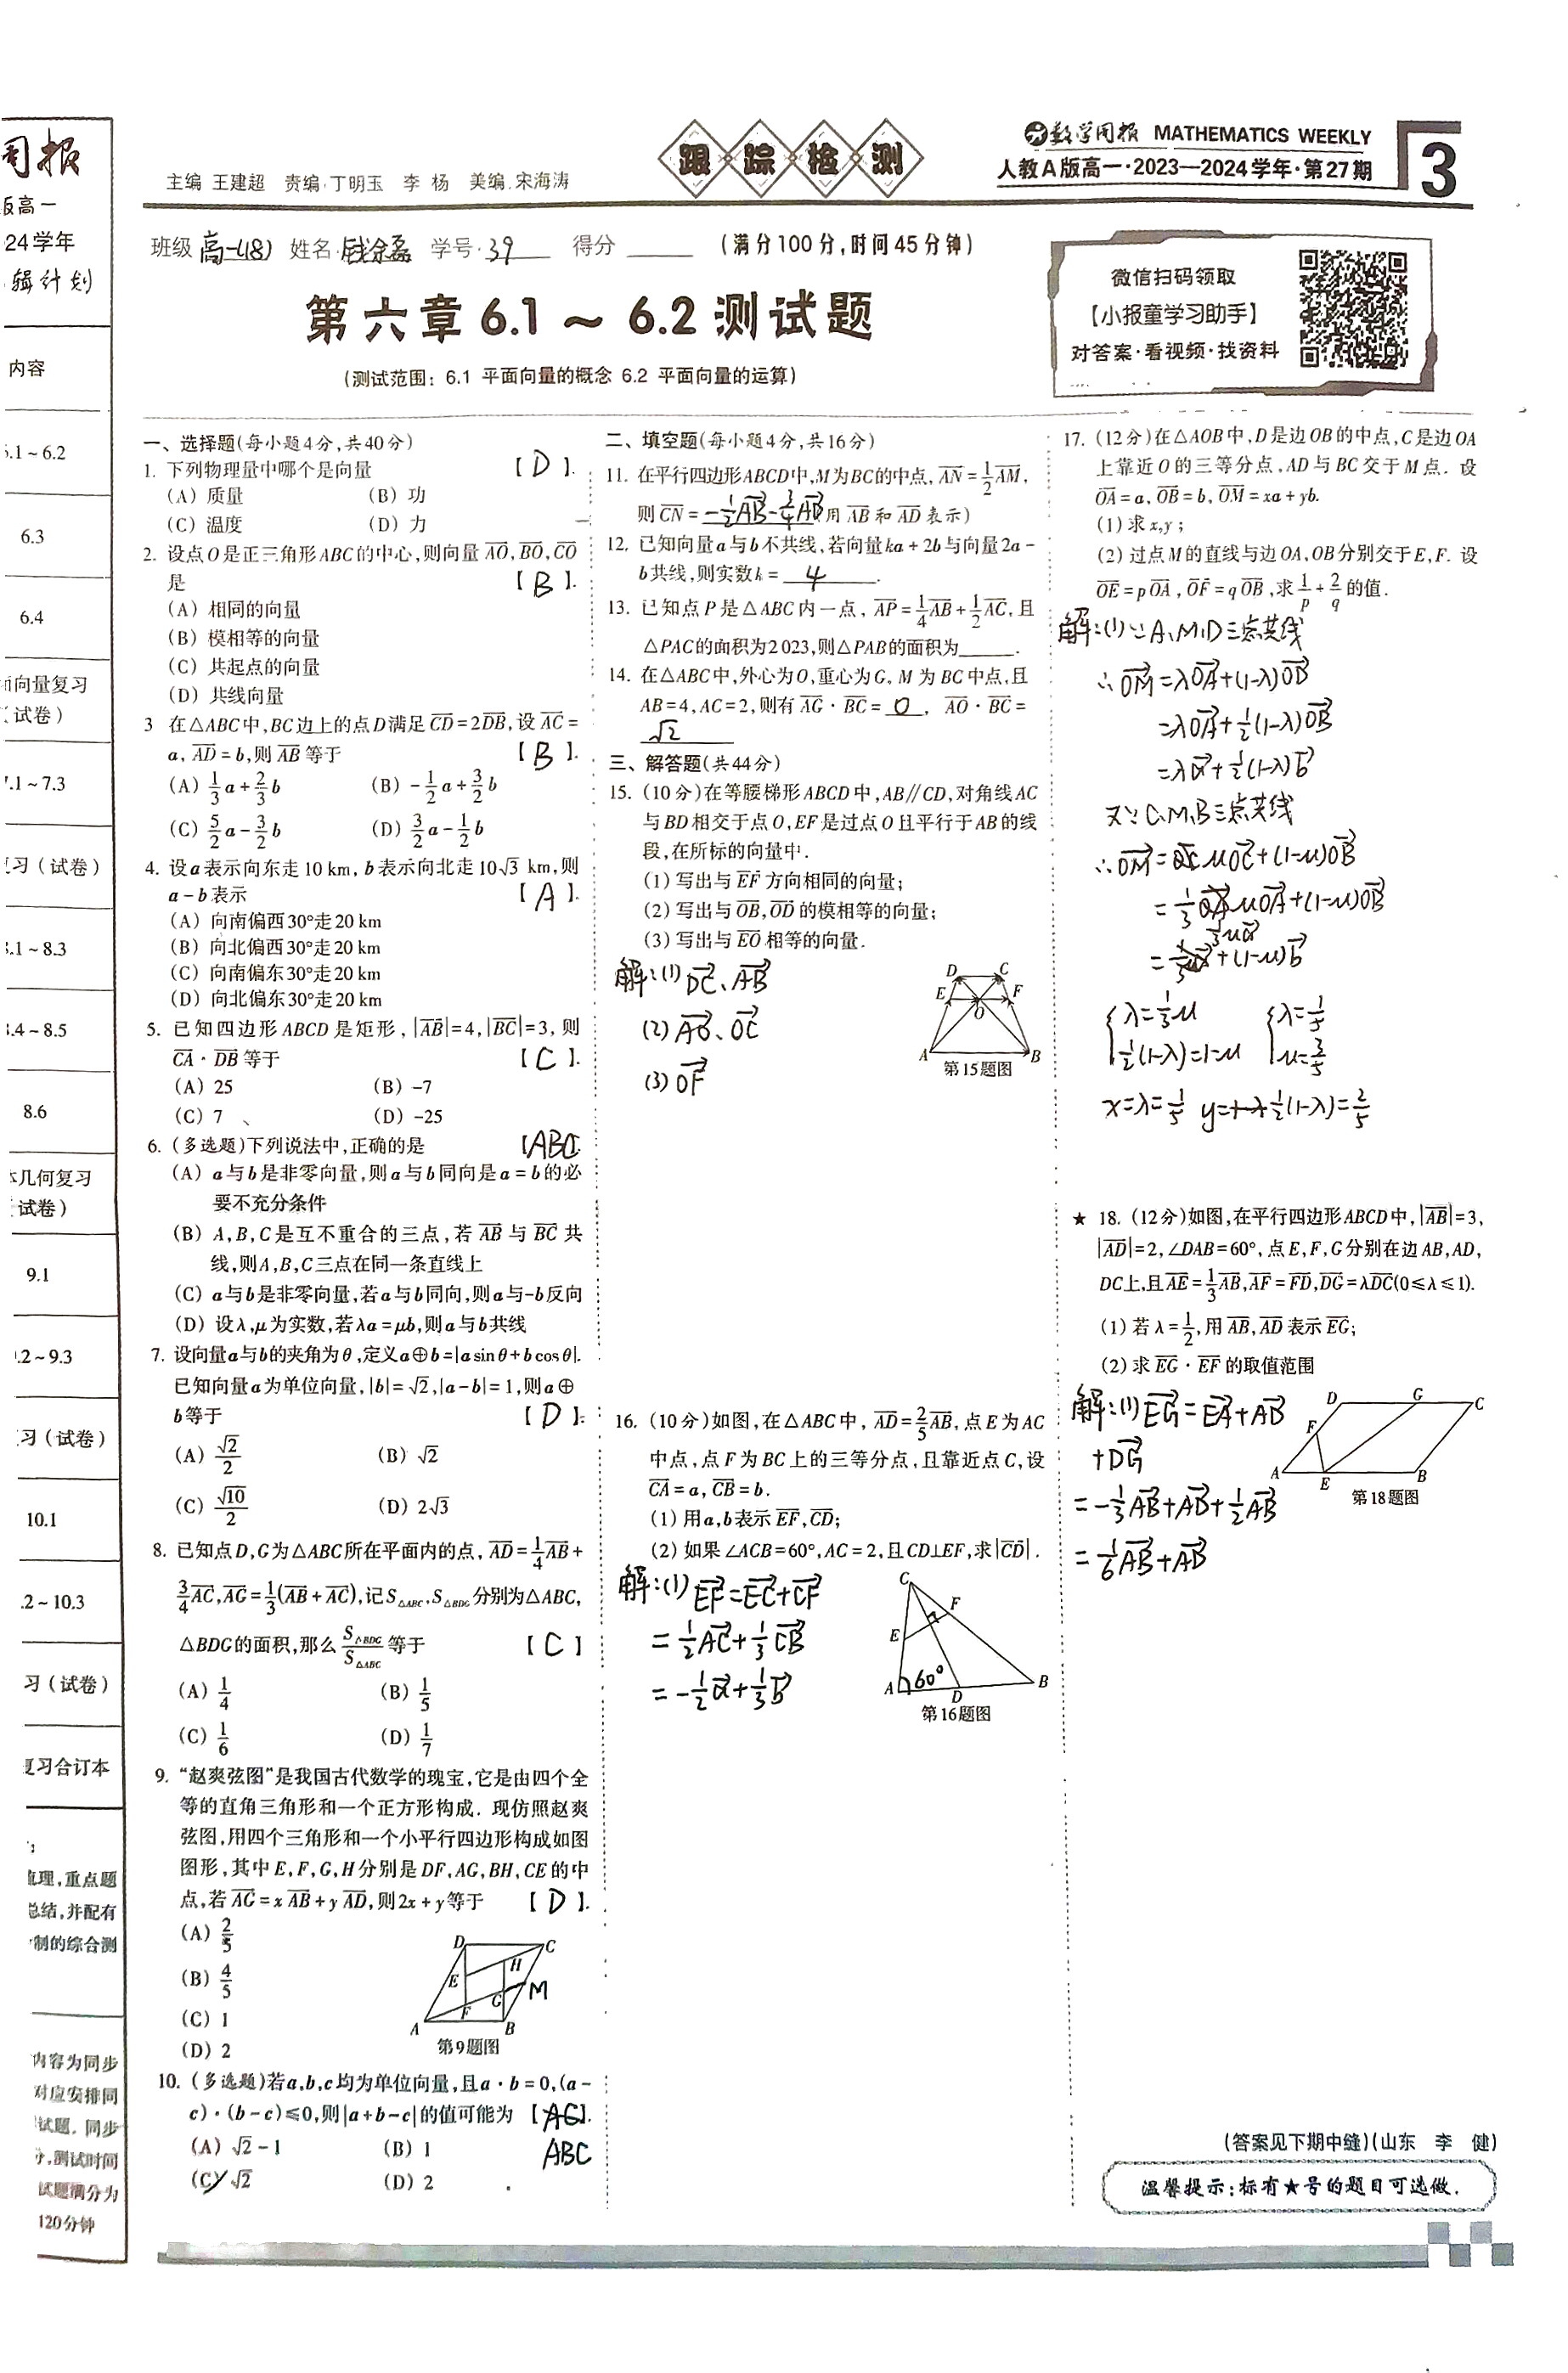 周报
版高一
24学年
辑计划
内容
6.1～6.2
6.3
6.4
面向量复习
（试卷）
7.1～7.3
复习（试卷）
8.1～8.3
8.4～8.5
8.6
体几何复习
（试卷）
9.1
9.2～9.3
习（试卷）
10.1
.2～10.3
习（试卷）
复习合订本
梳理,重点题
总结,并配有
制的综合测
内容为同步
对应安排同
试题. 同步
分,测试时间
试题满分为
120分钟
主编 王建超 责编·丁明玉 李 杨 美编.宋海涛
跟踪检测
数学周报 MATHEMATICS WEEKLY
人教A版高一·2023—2024学年·第27期
3
班级 高一(18) 姓名 钱余磊 学号·39 得分 （满分100分,时间45分钟）
第六章6.1～6.2测试题
（测试范围：6.1 平面向量的概念 6.2 平面向量的运算）
微信扫码领取
【小报童学习助手】
对答案·看视频·找资料
一、选择题(每小题4分,共40分)
1. 下列物理量中哪个是向量 【 D 】.
(A) 质量 (B) 功
(C) 温度 (D) 力
2. 设点O是正三角形ABC的中心,则向量 AO,BO,CO
是 【 B 】.
(A) 相同的向量
(B) 模相等的向量
(C) 共起点的向量
(D) 共线向量
3 在△ABC中,BC边上的点D满足CD=2DB,设AC=
a, AD=b,则AB等于 【 B 】.
(A) 1/3 a+2/3 b (B) -1/2 a+3/2 b
(C) 5/2 a-3/2 b (D) 3/2 a-1/2 b
4. 设a表示向东走10 km, b表示向北走10√3 km,则
a-b表示 【 A 】.
(A) 向南偏西30°走20 km
(B) 向北偏西30°走20 km
(C) 向南偏东30°走20 km
(D) 向北偏东30°走20 km
5. 已知四边形ABCD是矩形, |AB|=4,|BC|=3, 则
CA·DB等于 【 C 】.
(A) 25 (B) -7
(C) 7 (D) -25
6. (多选题)下列说法中,正确的是 【ABC】.
(A) a与b是非零向量,则a与b同向是a=b的必
要不充分条件
(B) A,B,C是互不重合的三点,若AB与BC共
线,则A,B,C三点在同一条直线上
(C) a与b是非零向量,若a与b同向,则a与-b反向
(D) 设λ,μ为实数,若λa=μb,则a与b共线
7. 设向量a与b的夹角为θ,定义a⊕b=|asinθ+bcosθ|.
已知向量a为单位向量,|b|=√2,|a-b|=1,则a⊕
b等于 【 D 】.
(A) √2/2 (B) √2
(C) √10/2 (D) 2√3
8. 已知点D,G为△ABC所在平面内的点, AD=1/4 AB+
3/4 AC,AG=1/3(AB+AC),记S△ABC,S△BDG分别为△ABC,
△BDG的面积,那么 S△BDG/S△ABC 等于 【 C 】
(A) 1/4 (B) 1/5
(C) 1/6 (D) 1/7
9. “赵爽弦图”是我国古代数学的瑰宝,它是由四个全
等的直角三角形和一个正方形构成. 现仿照赵爽
弦图,用四个三角形和一个小平行四边形构成如图
图形,其中E,F,G,H分别是DF,AG,BH,CE的中
点,若AG=xAB+yAD,则2x+y等于 【 D 】.
(A) 2/5
(B) 4/5
(C) 1
(D) 2
D C H E M G F A B
第9题图
10. (多选题)若a,b,c均为单位向量,且a·b=0,(a-
c)·(b-c)≤0,则|a+b-c|的值可能为 【AC】.
(A) √2-1 (B) 1 ABC
(C) √2 (D) 2
二、填空题(每小题4分,共16分)
11. 在平行四边形ABCD中,M为BC的中点, AN=1/2 AM,
则CN= -1/2 AB-3/4 AD (用AB和AD表示)
12. 已知向量a与b不共线,若向量ka+2b与向量2a-
b共线,则实数k= 4 .
13. 已知点P是△ABC内一点, AP=1/4 AB+1/2 AC, 且
△PAC的面积为2 023,则△PAB的面积为 .
14. 在△ABC中,外心为O,重心为G, M为BC中点,且
AB=4,AC=2,则有AG·BC= 0 , AO·BC=
√2
三、解答题(共44分)
15. (10分)在等腰梯形ABCD中,AB∥CD,对角线AC
与BD相交于点O,EF是过点O且平行于AB的线
段,在所标的向量中.
(1) 写出与EF方向相同的向量;
(2) 写出与OB,OD的模相等的向量;
(3) 写出与EO相等的向量.
解:(1) DC、AB
(2) AO、OC
(3) OF
D C E F O A B
第15题图
16. (10分)如图,在△ABC中, AD=2/5 AB, 点E为AC
中点,点F为BC上的三等分点,且靠近点C,设
CA=a, CB=b.
(1) 用a,b表示EF,CD;
(2) 如果∠ACB=60°,AC=2,且CD⊥EF,求|CD|.
解:(1) EF=EC+CF
=1/2 AC+1/3 CB
=-1/2 a+1/3 b
C F E A 60° D B
第16题图
17. (12分)在△AOB中,D是边OB的中点,C是边OA
上靠近O的三等分点,AD与BC交于M点. 设
OA=a, OB=b, OM=xa+yb.
(1) 求x,y;
(2) 过点M的直线与边OA,OB分别交于E,F. 设
OE=pOA, OF=qOB,求1/p+2/q的值.
解:(1)∵A、M、D三点共线
∴OM=λOA+(1-λ)OD
=λOA+1/2(1-λ)OB
=λa+1/2(1-λ)b
又∵C、M、B三点共线
∴OM=μOC+(1-μ)OB
=1/3 μOA+(1-μ)OB
=1/3 μa+(1-μ)b
{λ=1/3 μ {λ=1/5
1/2(1-λ)=1-μ μ=3/5
x=λ=1/5 y=1/2(1-λ)=2/5
★ 18. (12分)如图,在平行四边形ABCD中,|AB|=3,
|AD|=2,∠DAB=60°,点E,F,G分别在边AB,AD,
DC上,且AE=1/3 AB,AF=FD,DG=λDC(0≤λ≤1).
(1) 若λ=1/2,用AB,AD表示EG;
(2) 求EG·EF的取值范围
解:(1) EG=EA+AD
+DG
=-1/3 AB+AD+1/2 AB
=1/6 AB+AD
D G C F A E B
第18题图
(答案见下期中缝)(山东 李 健)
温馨提示:标有★号的题目可选做.